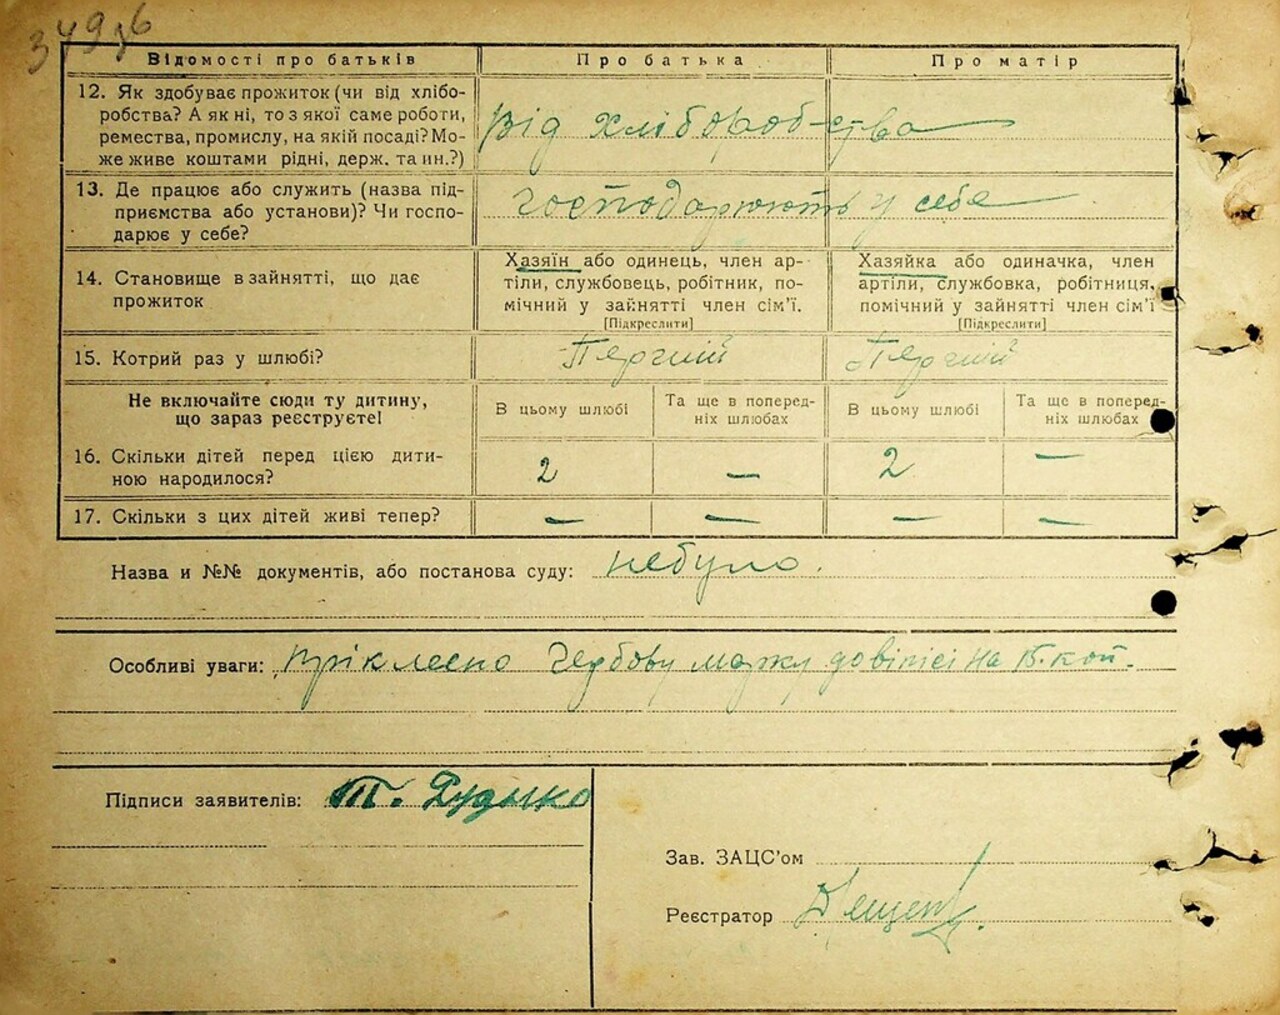 349зв
Відомості про батьків
Про батька
Про матір
12. Як здобуває прожиток (чи від хлібо-
робства? А як ні, то з якої саме роботи,
ремества, промислу, на якій посаді? Мо-
же живе коштами рідні, держ. та ин.?)
від хлібороб-ства
13. Де працює або служить (назва під-
приємства або установи)? Чи госпо-
дарює у себе?
господарюють у себе
14. Становище в зайнятті, що дає
прожиток
Хазяїн або одинець, член ар-
тіли, службовець, робітник, по-
мічний у зайнятті член сім'ї.
[Підкреслити]
Хазяйка або одиначка, член
артіли, службовка, робітниця,
помічний у зайнятті член сім'ї
[Підкреслити]
15. Котрий раз у шлюбі?
Перший
Перший
Не включайте сюди ту дитину,
що зараз реєструєте!
В цьому шлюбі
Та ще в поперед-
ніх шлюбах
В цьому шлюбі
Та ще в поперед-
ніх шлюбах
16. Скільки дітей перед цією дити-
ною народилося?
2
—
2
—
17. Скільки з цих дітей живі тепер?
— — — —
Назва и №№ документів, або постанова суду: небуло.
Особливі уваги: пріклеєно гербову марку до віпісі на 15. коп.
Підписи заявителів: Т. Рудько
Зав. ЗАЦС'ом
Реєстратор